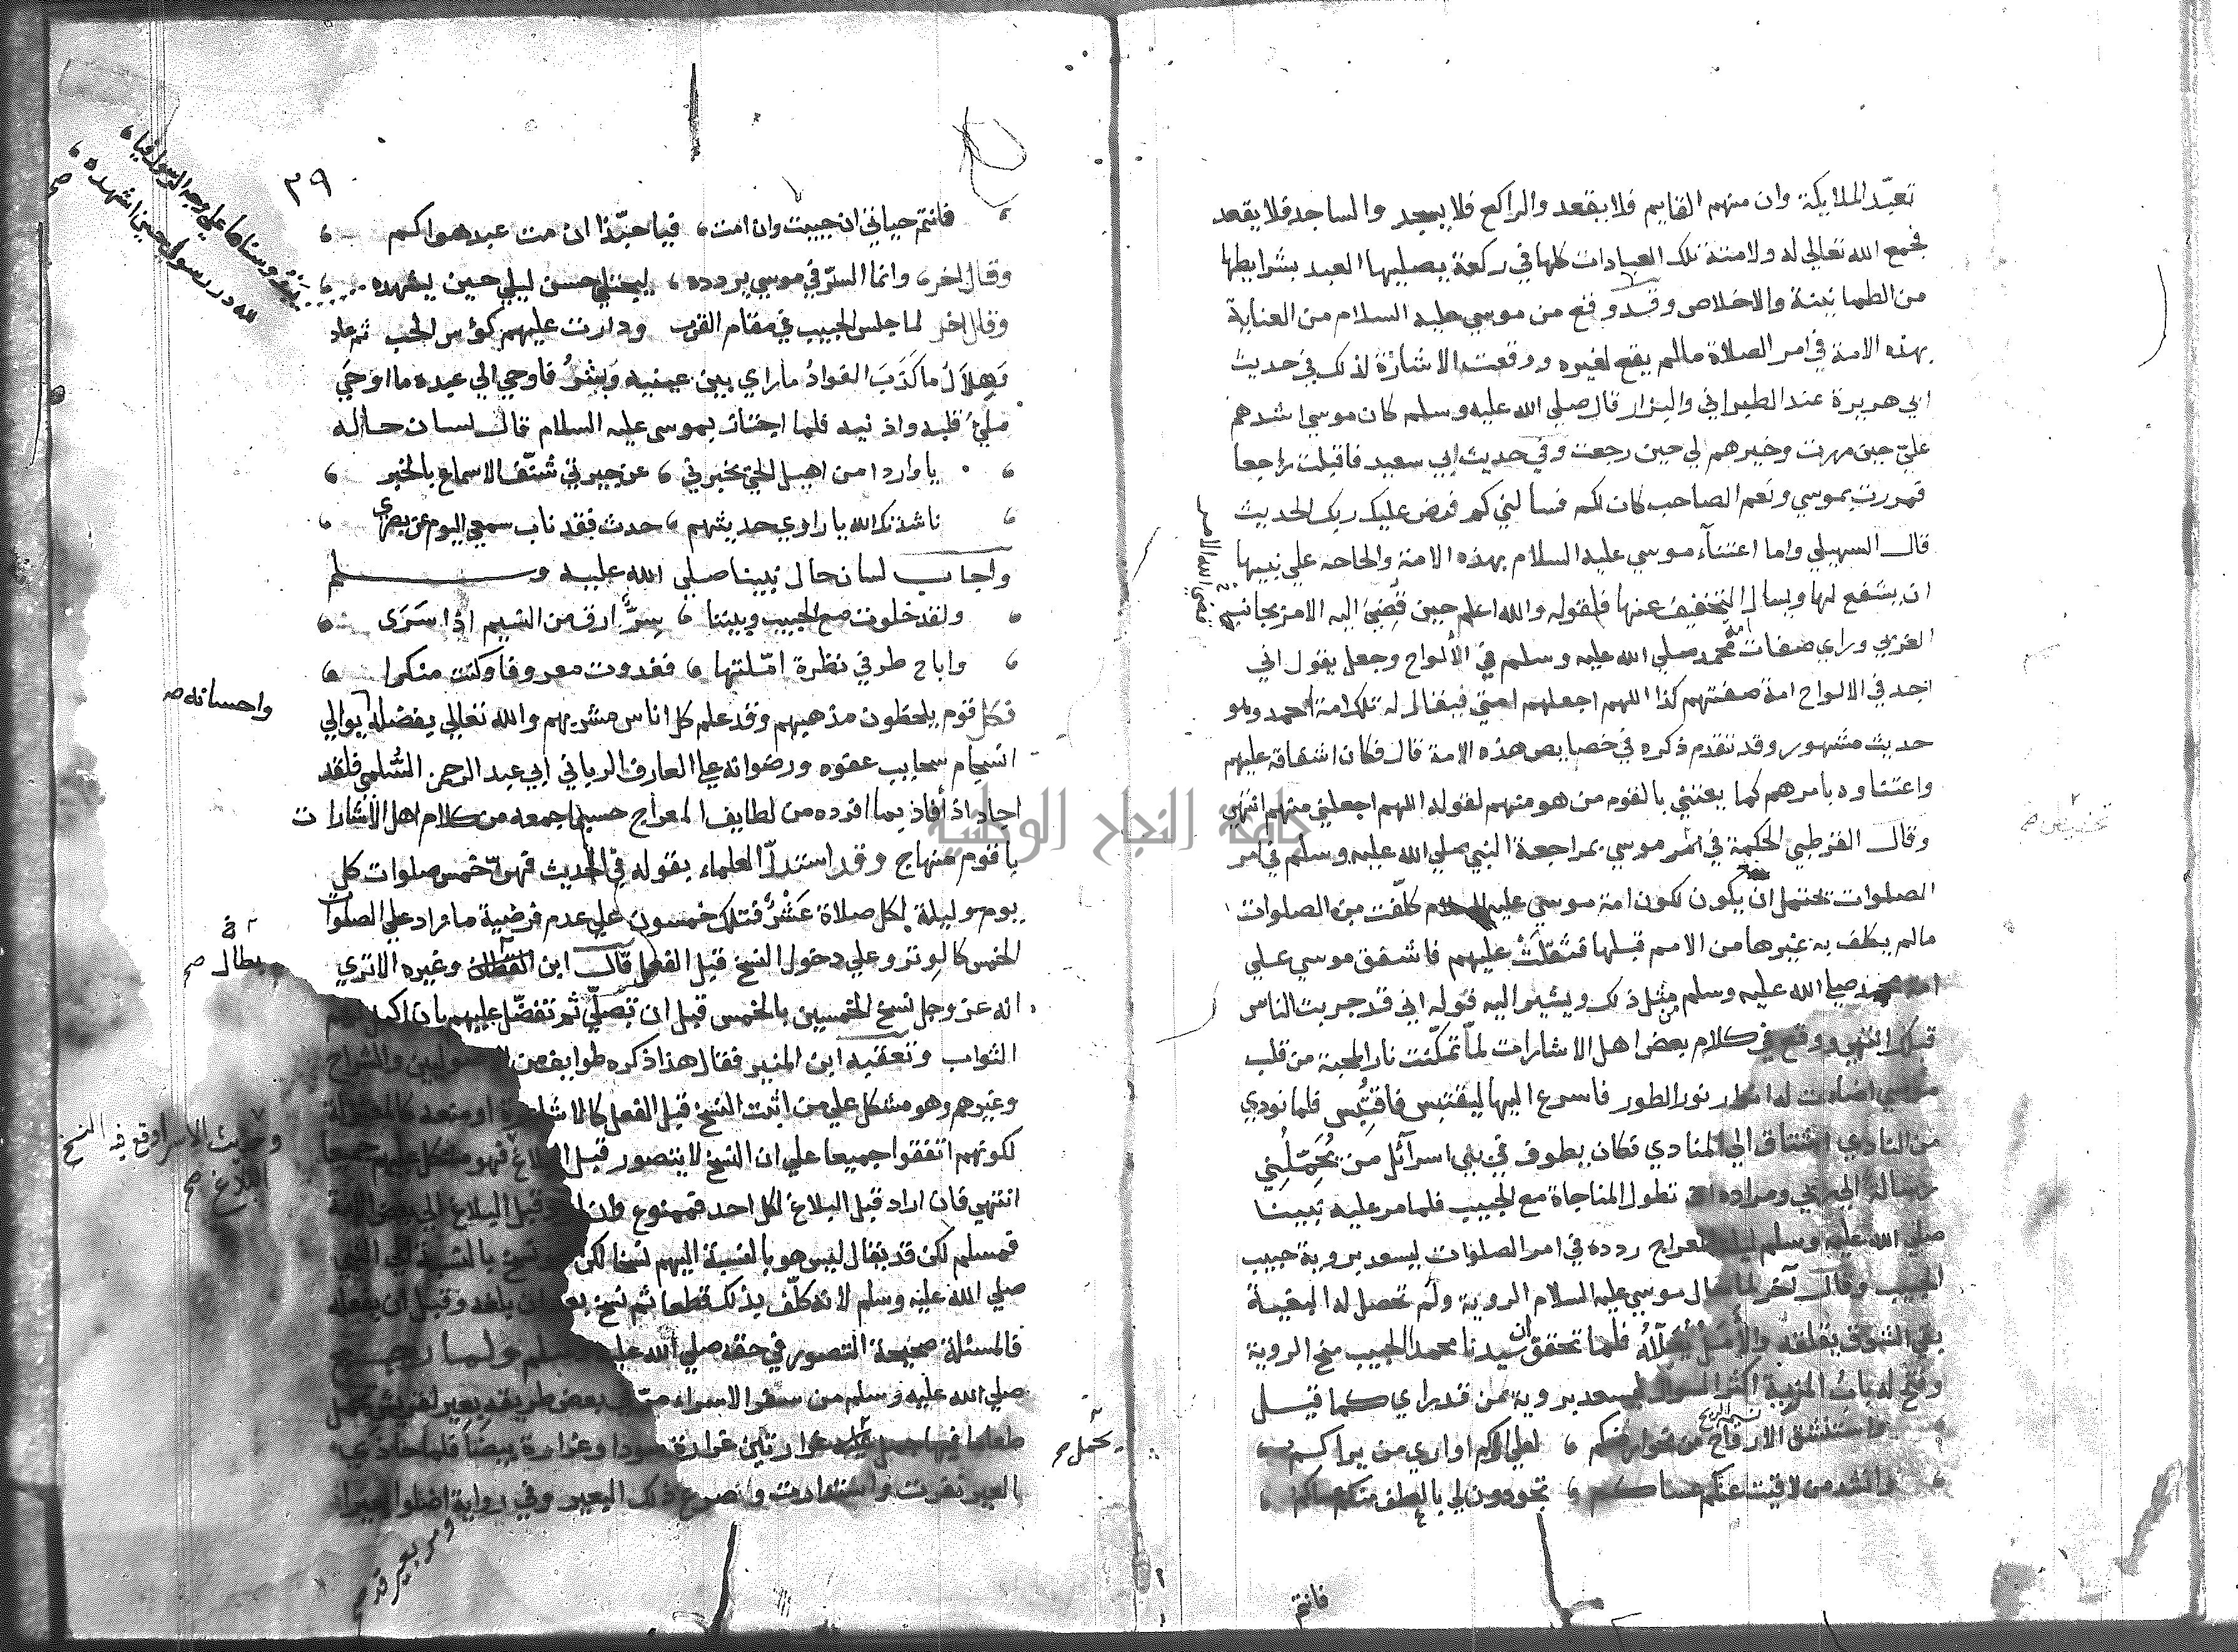 تعبّد الملايكة وان منهم القايم فلا يقعد والراكع فلا يسجد والساجد فلا يقعد
فجمع الله تعالي له ولامته تلك العبادات كلها في ركعة يصليها العبد بشرايطها
من الطمانينة والاخلاص وقد وقع من موسي عليه السلام من العناية
بهذه الامة في امر الصلاة مالم يقع لغيره ووقعت الاشارة لذلك في حديث
ابي هريرة عند الطبراني والبزار قال صلي الله عليه وسلم كان موسي اشدهم
عليّ حين مررت وخيرهم لي حين رجعت وفي حديث ابي سعيد فاقبلت راجعا
فمررت بموسي ونعم الصاحب كان لكم فسالني كم فرض عليك ربك الحديث
قال السهيلي واما اعتناء موسي عليه السلام بهذه الامة والحاحه علي نبيها
ان يشفع لها ويسال التخفيف عنها فلقوله والله اعلم حين قُضي اليه الامر بجانب
الغربي وراي صفات امة محمد صلي الله عليه وسلم في الألواح وجعل يقول اني
اجد في الالواح امة صفتهم كذا اللهم اجعلهم امتي فيقال له تلك امة احمد وهو
حديث مشهور وقد تقدم ذكره في خصايص هذه الامة قال فكان اشفاقه عليهم
واعتناوه بامرهم كما يعتني بالقوم من هو منهم لقوله اللهم اجعلني منهم انتهي
وقال القرطبي الحكمة في امر موسي بمراجعة النبي صلي الله عليه وسلم في امر
الصلوات يحتمل ان يكون لكون امة موسي عليه السلام كلّفت من الصلوات
مالم يكلف به غيرها من الامم قبلها فثقلت عليهم فاشفق موسي علي
امة محمد صلي الله عليه وسلم من مثل ذلك ويشير اليه قوله اني قد جربت الناس
قبلك انتهي ووقع في كلام بعض اهل الاشارات لمّا تمكّنت نار المحبة من قلب
موسي اضاءت له انوار نور الطور فاسرع اليها ليقتبس فاحتُبِس فلما نودي
من النادي اشتاق الي المنادي فكان يطوف في بني اسرآئل من يُحَمِّلُني
رسالة الي ربي ومراده ان تطول المناجاة مع الحبيب فلما مر عليه نبينا
صلي الله عليه وسلم ليلة المعراج ردده في امر الصلوات ليسعد بروية حبيب
الحبيب وقال آخر لما سال موسي عليه السلام الروية ولم تحصل له البغية
بقي الشوق يقلقه والأمل يُعَلِّلُهُ فلما تحقق ان سيدنا محمد الحبيب منح الروية
وفتح له باب المزية اكثر السوال ليسعد بروية من قد راي كما قيل
واستنشق الارواح من نحو ارضكم ، لعلي اراكم او اري من يراكم
وانشد من لاقيت عنكم عساكم ، تجودون لي بالعطف منكم عساكم
فانتم
٣٩
فانتم حياتي ان حييت وان امت ، فيا حبّذا ان مت عبد هواكم
وقال اخر وانما السرّ في موسي يردده ، ليجتلي حسن ليلي حين يشهده
يبدو سناها علي وجه الرسول فيا ،
لله در رسول حين اشهده ، صح
وقال اخر لما جلس الحبيب في مقام القرب ودارت عليهم كؤس الحب ثم عاد
وَهِلاَلُ ما كَذَبَ الفوادُ ما راي بين عينيه وَبِشْرُ فاوحي الي عبده ما اوحي
مِلْيُ قلبه واذنيه فلما اجتاز بموسي عليه السلام قال لسان حاله
يا واردا من اهيل الحي يخبرني ، عن جيرتي شنّف الاسماع بالخبر
ناشدتك الله يا راوي حديثهم ، حدث فقد ناب سمعي اليوم عن بصري
واجاب لسان حال نبينا صلي الله عليه وسلم
ولقد خلوت مع الحبيب وبيننا ، سِرّ ارق من النسيم اذا سَرَى
واباح طرفي نظرة امّلتها ، فغدوت معروفا وكنت منكرا
فكل قوم يلحظون مذهبهم وقد علم كل اناس مشربهم والله تعالي بفضله يوالي
واحسانه صح
انسجام سحايب عفوه ورضوانه علي العارف الرباني ابي عبد الرحمن السُّلمي فلقد
اجاد اذ أفاد بما افرده من لطايف المعراج حسبما جمعه من كلام اهل الاشارات
باقوم منهاج وقد استدلّ العلماء بقوله في الحديث فهن خمس صلوات كل
يوم وليلة لكل صلاة عَشْرُ فتلك خمسون علي عدم فرضية ما زاد علي الصلوات
الخمس كالوتر وعلي دخول النسخ قبل الفعل قال ابن وغيره الا تري
بطال صح
انه عز وجل نسخ الخمسين بالخمس قبل ان تصلّي ثم تفضّل عليهم بان اكمل لهم
الثواب وتعقبه ابن المنير فقال هذا ذكره طوايف من الاصوليين والشراح
وغيرهم وهو مشكل علي من اثبت النسخ قبل الفعل كالاشاعرة او منعه كالمعتزلة
لكونهم اتفقوا جميعا علي ان النسخ لا يتصور قبل البلاغ فهو مشكل عليهم جميعا
وحديث الاسرا وقع فيه النسخ
قبل البلاغ صح
انتهي فان اراد قبل البلاغ لكل احد فممنوع وان اراد قبل البلاغ الي الامة
فمسلم لكن قد يقال ليس هو بالنسبة اليهم نسخا لكن هو نسخ بالنسبة الي النبي
صلي الله عليه وسلم لانه كلّف بذلك قطعا ثم نسخ بعد ان بلغه وقبل ان يفعله
فالمسئلة صحيحة التصور في حقه صلي الله عليه وسلم ولما رجع
صلي الله عليه وسلم من سفر الاسراء مرّ في بعض طريقه بعير لقريش تحمل
طعاما فيها جمل يحمل غرارتين غرارة سودا وغرارة بيضا فلما حاذي
يحمل صح
العير نفرت واستدارت وانصرع ذلك البعير وفي رواية اضلوا بعيرا
ومر بعير قد صح
جامعة النجاح الوطنية